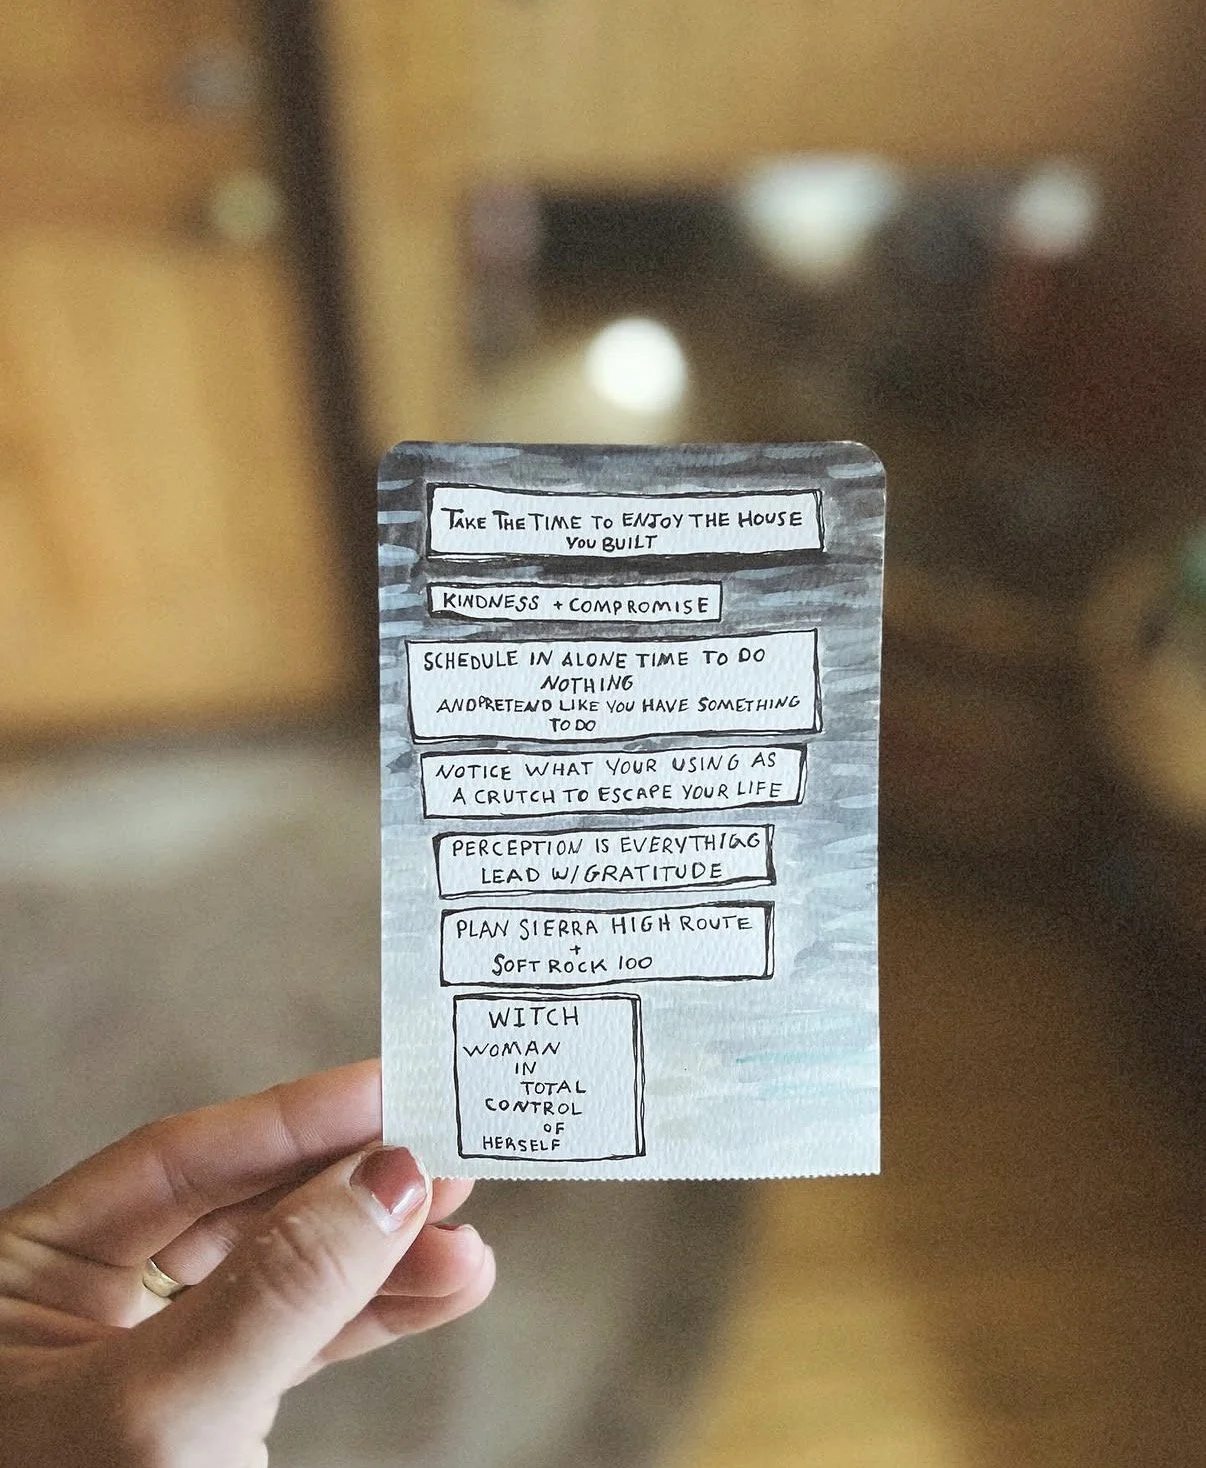 TAKE THE TIME TO ENJOY THE HOUSE
YOU BUILT
KINDNESS + COMPROMISE
SCHEDULE IN ALONE TIME TO DO
NOTHING
AND PRETEND LIKE YOU HAVE SOMETHING
TO DO
NOTICE WHAT YOUR USING AS
A CRUTCH TO ESCAPE YOUR LIFE
PERCEPTION IS EVERYTHIGG
LEAD W/ GRATITUDE
PLAN SIERRA HIGH ROUTE
+
SOFT ROCK 100
WITCH
WOMAN
IN
TOTAL
CONTROL
OF
HERSELF